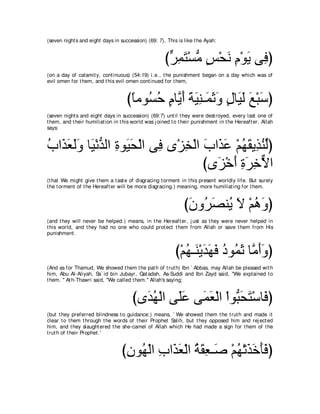 (seven nights and eight days in succession) (69: 7). This is like the Ayah:
(فِى يَوْمِ نَحْسٍ مُّسْتَمِرٍّ)
(on a day of calamity, continuous) (54:19) i.e., the punishment began on a day which was of evil omen for them, and this evil omen continued for them,
(سَبْعَ لَيَالٍ وَثَمَـنِيَةَ أَيَّامٍ حُسُوماً)
(seven nights and eight days in succession) (69:7) until they were destroyed, every last one of them, and their humiliation in this world was joined to their punishment in the Hereafter. Allah says:
(لِّنُذِيقَهُمْ عَذَابَ الْخِزْىِ فِى الْحَيَوةِ الدُّنْيَا وَلَعَذَابُ
الاٌّخِرَةِ أَخْزَى)
(that We might give them a taste of disgracing torment in this present worldly life. But surely the torment of the Hereafter will be more disgracing,) meaning, more humiliating for them.
(وَهُمْ لاَ يُنصَرُونَ)
(and they will never be helped.) means, in the Hereafter, just as they were never helped in this world, and they had no one who could protect them from Allah or save them from His punishment.
(وَأَمَّا ثَمُودُ فَهَدَيْنَـهُمْ)
(And as for Thamud, We showed them the path of truth) Ibn `Abbas, may Allah be pleased with him, Abu Al-Aliyah, Sa`id bin Jubayr, Qatadah, As-Suddi and Ibn Zayd said, "We explained to them.'' Ath-Thawri said, "We called them.'' Allah's saying;
(فَاسْتَحَبُّواْ الْعَمَى عَلَى الْهُدَى)
(but they preferred blindness to guidance;) means, `We showed them the truth and made it clear to them through the words of their Prophet Salih, but they opposed him and rejected him, and they slaughtered the she-camel of Allah which He had made a sign for them of the truth of their Prophet.'
(فَأَخَذَتْهُمْ صَـعِقَةُ الْعَذَابِ الْهُونِ)